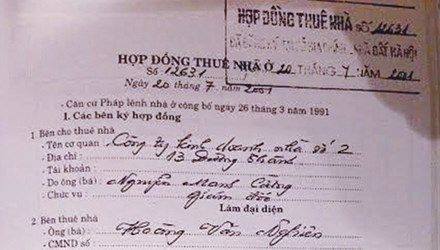 HỢP ĐỒNG THUÊ NHÀ SỐ 12631
NHÀ ĐẤT HÀ NỘI
20 THÁNG 7 NĂM 2001
HỢP ĐỒNG THUÊ NHÀ Ở
Số 12631
Ngày 20 tháng 7 năm 2001
- Căn cứ Pháp lệnh nhà ở công bố ngày 26 tháng 3 năm 1991
I. Các bên ký hợp đồng
1. Bên cho thuê nhà
- Tên cơ quan Công ty kinh doanh nhà số 2
- Địa chỉ : 13 Đường Thành
- Tài khoản :
- Do ông (bà) : Nguyễn Mạnh Cường
- Chức vụ : Giám đốc
Làm đại diện
2. Bên thuê nhà
- Ông (bà) : Hoàng Văn Nghiên
- CMND số